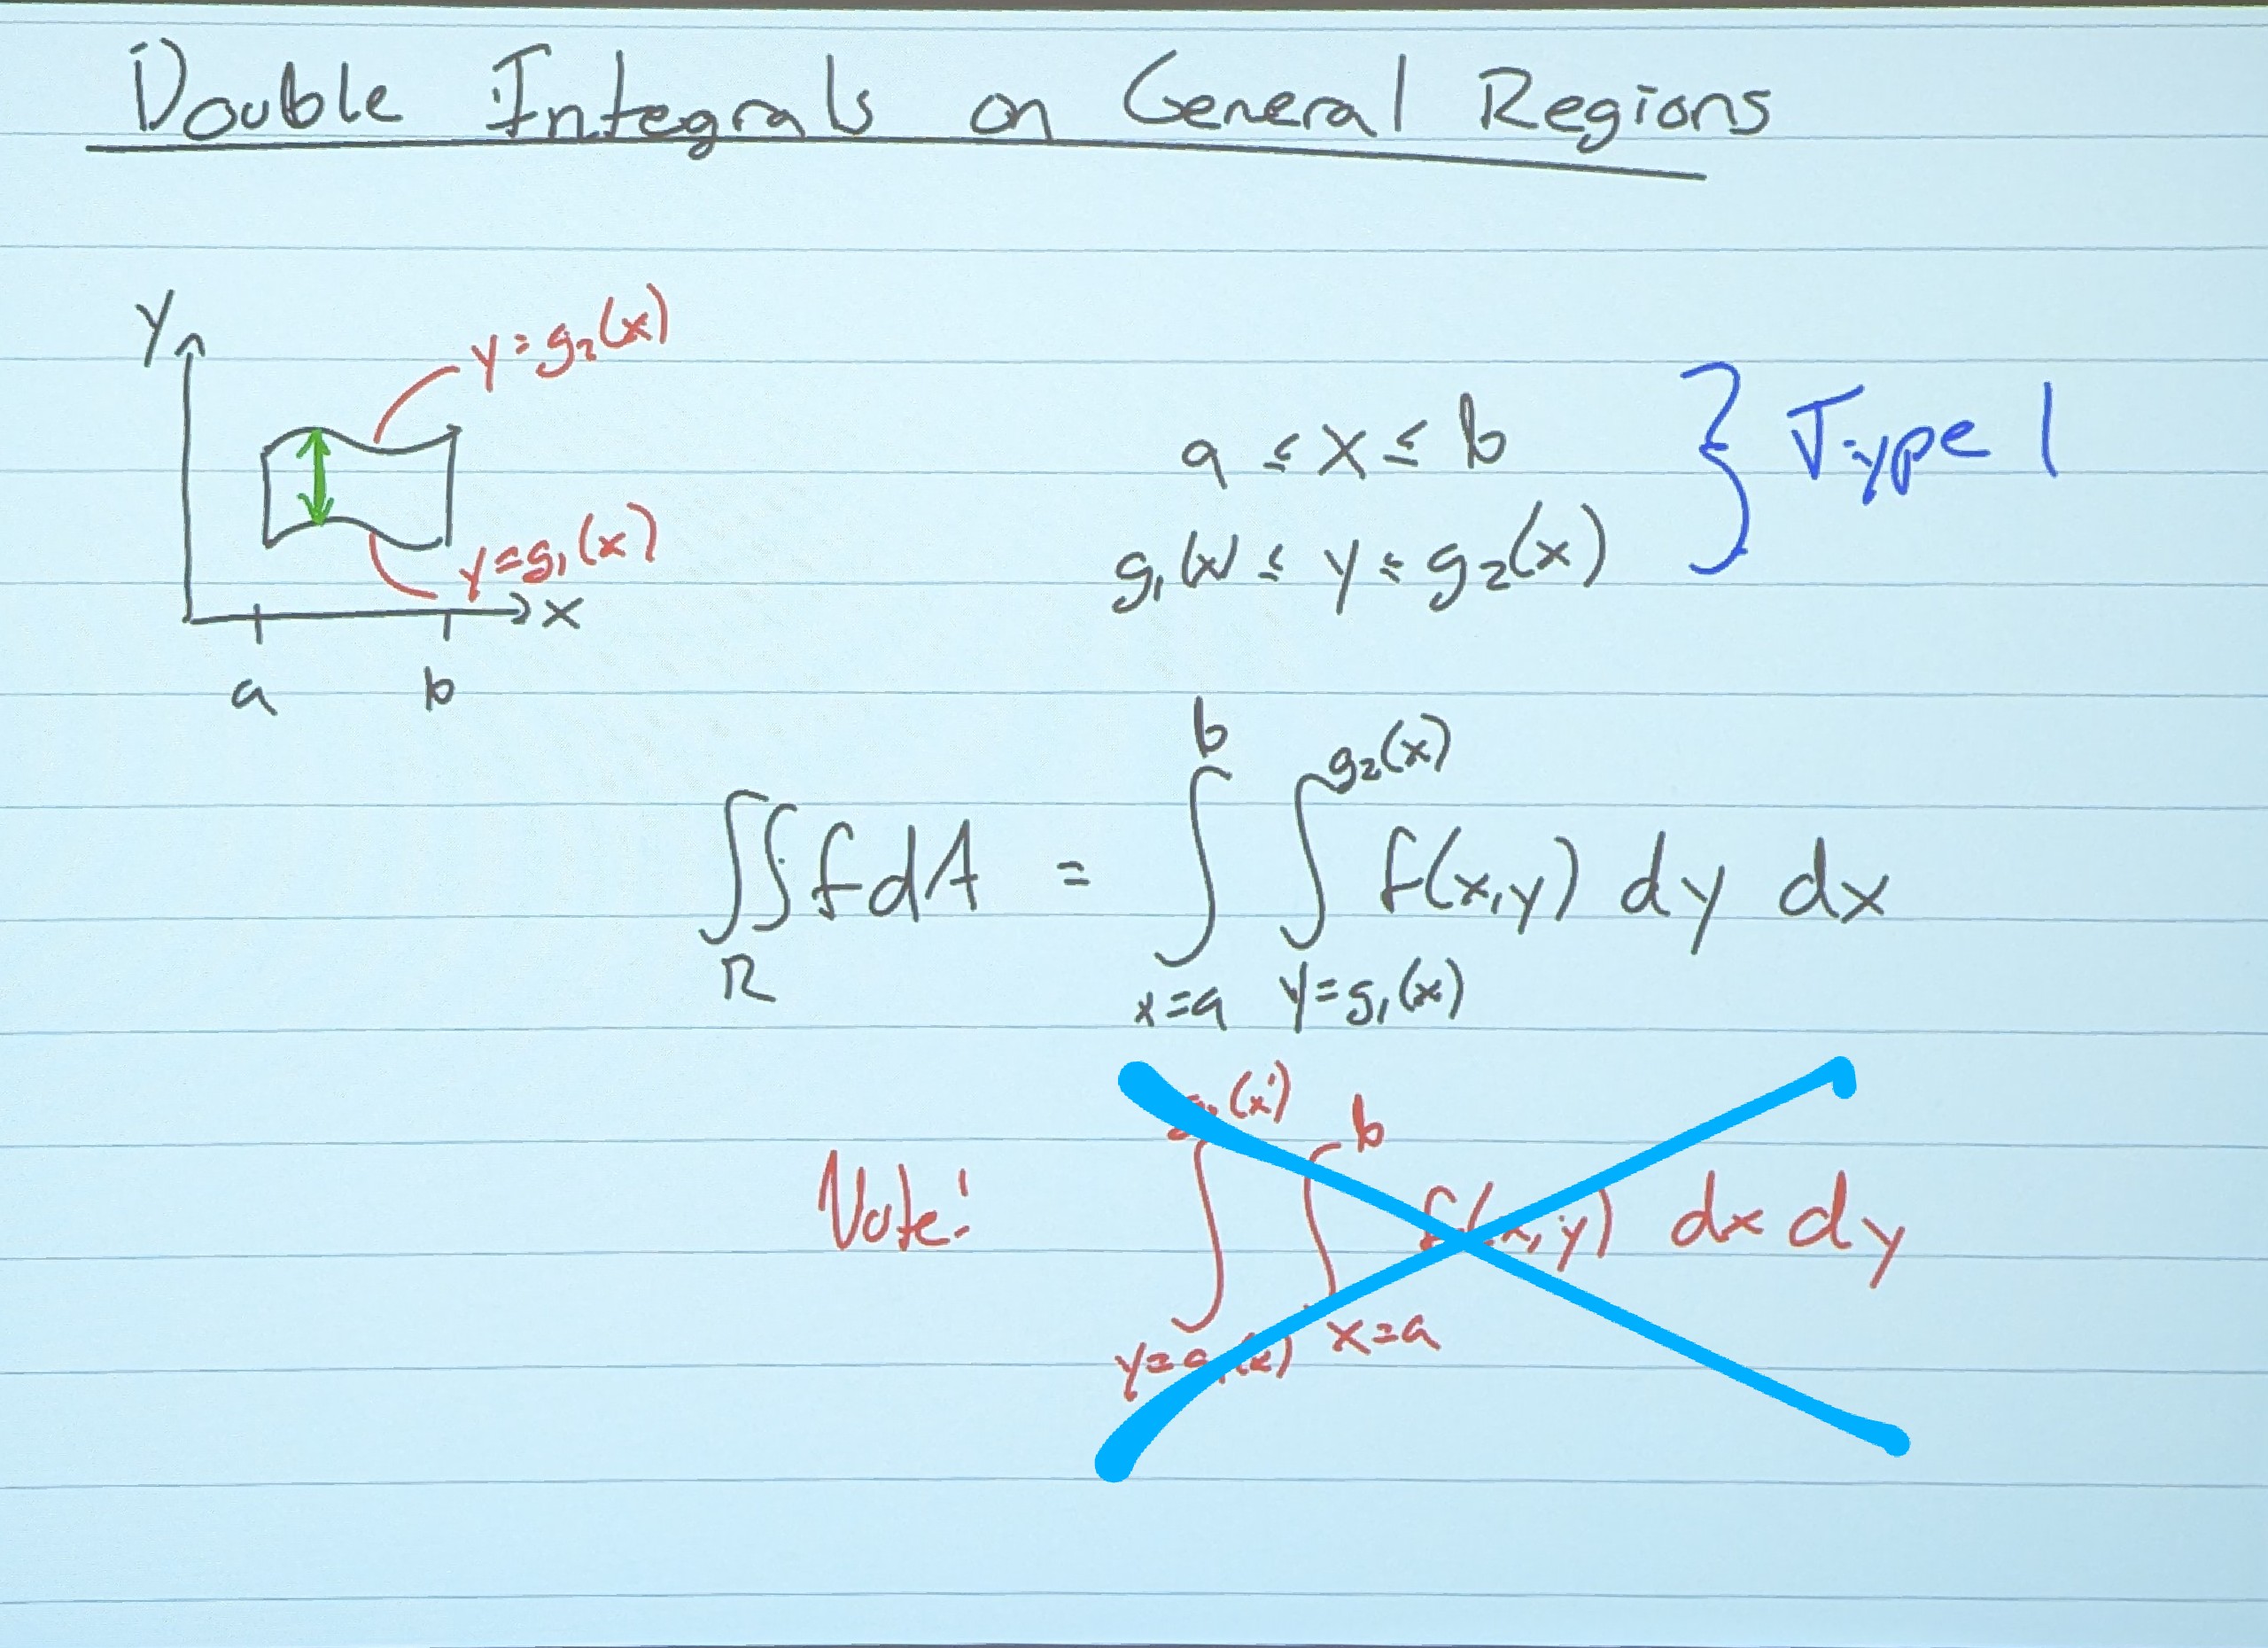 Double Integrals on General Regions
y
y = g₂(x)
a ≤ x ≤ b } Type 1
g₁(x) ≤ y ≤ g₂(x)
y = g₁(x)
x
a b
∬_R f dA = ∫_{x=a}^{b} ∫_{y=g₁(x)}^{g₂(x)} f(x,y) dy dx
Note: ∫_{y=g₁(x)}^{g₂(x)} ∫_{x=a}^{b} f(x,y) dx dy